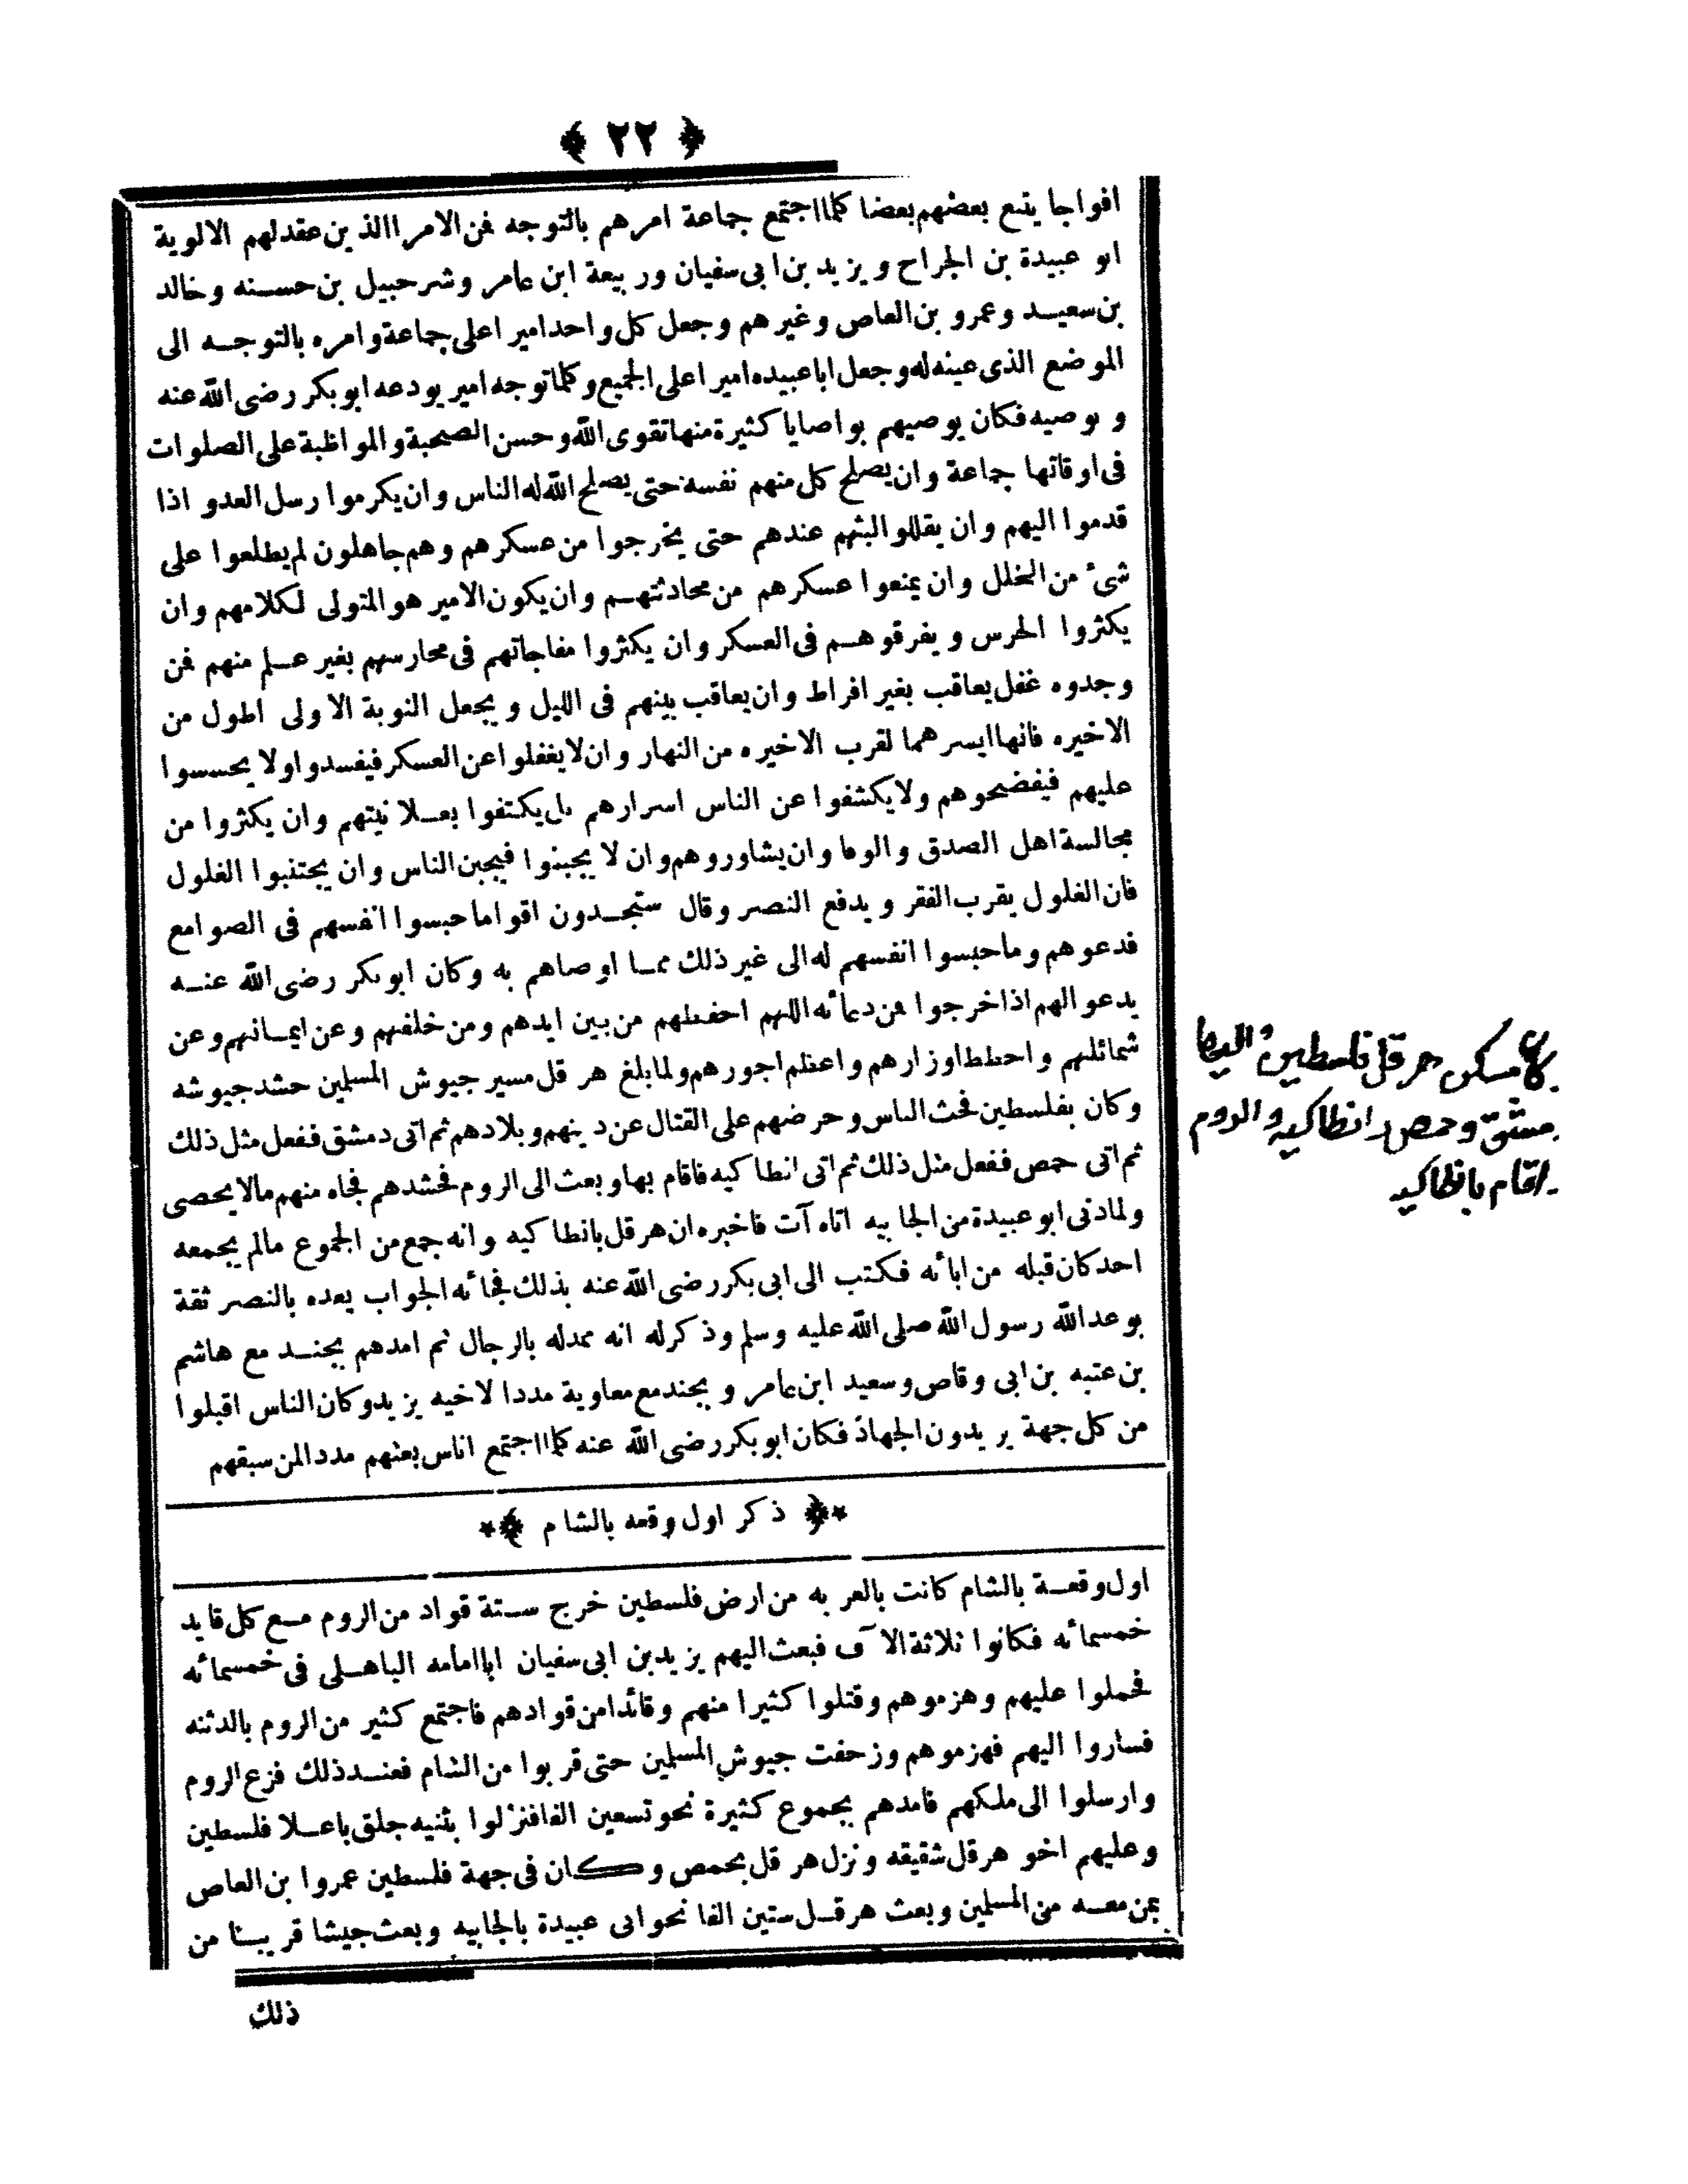 ﴿ ٢٢ ﴾
افواجا يتبع بعضهم بعضا كلما اجتمع جماعة امرهم بالتوجه فمن الامرا الذين عقد لهم الالوية
ابو عبيدة بن الجراح ويزيد بن ابى سفيان وربيعة ابن عامر وشرحبيل بن حسنه وخالد
بن سعيد وعمرو بن العاص وغيرهم وجعل كل واحد اميرا على جماعة وامره بالتوجه الى
الموضع الذى عينه له وجعل ابا عبيده اميرا على الجميع وكلما توجه امير يودعه ابو بكر رضى الله عنه
و يوصيه فكان يوصيهم بواصايا كثيرة منها تقوى الله وحسن الصحبة والمواظبة على الصلوات
فى اوقاتها جماعة وان يصلح كل منهم نفسه حتى يصلح الله له الناس وان يكرموا رسل العدو اذا
قدموا اليهم وان يقللو البثهم عندهم حتى يخرجوا من عسكرهم وهم جاهلون لم يطلعوا على
شئ من الخلل وان يمنعوا عسكرهم من محادثتهم وان يكون الامير هو المتولى لكلامهم وان
يكثروا الحرس ويفرقوهم فى العسكر وان يكثروا مفاجاتهم فى محارسهم بغير علم منهم فمن
وجدوه غفل يعاقب بغير افراط وان يعاقب بينهم فى الليل ويجعل النوبة الاولى اطول من
الاخيره فانها ايسرهما لقرب الاخيره من النهار وان لا يغفلوا عن العسكر فيفسدوا ولا يحسسوا
عليهم فيفضحوهم ولا يكشفوا عن الناس اسرارهم بل يكتفوا بعلانيتهم وان يكثروا من
مجالسة اهل الصدق والوفا وان يشاوروهم وان لا يجبنوا فيجبن الناس وان يجتنبوا الغلول
فان الغلول يقرب الفقر ويدفع النصر وقال ستجدون اقواما حبسوا انفسهم فى الصوامع
فدعوهم وما حبسوا انفسهم له الى غير ذلك مما اوصاهم به وكان ابو بكر رضى الله عنه
يدعو الهم اذا خرجوا فمن دعائه اللهم احفظهم من بين ايدهم ومن خلفهم وعن ايمانهم وعن
شمائلهم واحطط اوزارهم واعظم اجورهم ولما بلغ هرقل مسير جيوش المسلمين حشد جيوشه
وكان بفلسطين فحث الناس وحرضهم على القتال عن دينهم وبلادهم ثم اتى دمشق ففعل مثل ذلك
ثم اتى حمص ففعل مثل ذلك ثم اتى انطاكيه فاقام بها وبعث الى الروم فحشدهم فجاه منهم مالا يحصى
ولما دنى ابو عبيدة من الجابيه اتاه آت فاخبره ان هرقل بانطاكيه وانه جمع من الجموع مالم يجمعه
احد كان قبله من ابائه فكتب الى ابى بكر رضى الله عنه بذلك فجائه الجواب يعده بالنصر ثقة
بوعد الله رسول الله صلى الله عليه وسلم وذكر له انه ممدله بالرجال ثم امدهم بجند مع هاشم
بن عتبه بن ابى وقاص وسعيد ابن عامر وبجند مع معاوية مددا لاخيه يزيد وكان الناس اقبلوا
من كل جهة يريدون الجهاد فكان ابو بكر رضى الله عنه كلما اجتمع اناس بعثهم مددا لمن سبقهم
مسكن هرقل فلسطين
وحمص انطاكيه والروم
اقام بانطاكيه
*﴿ ذكر اول وقعه بالشام ﴾*
اول وقعة بالشام كانت بالعربه من ارض فلسطين خرج ستة قواد من الروم مع كل قايد
خمسمائه فكانوا ثلاثة الآف فبعث اليهم يزيد بن ابى سفيان ابا امامه الباهلى فى خمسمائه
فحملوا عليهم وهزموهم وقتلوا كثيرا منهم وقائدا من قوادهم فاجتمع كثير من الروم بالدثنه
فساروا اليهم فهزموهم وزحفت جيوش المسلمين حتى قربوا من الشام فعند ذلك فزع الروم
وارسلوا الى ملكهم فامدهم بجموع كثيرة نحو تسعين الفا فنزلوا بثنيه جلق باعلا فلسطين
وعليهم اخو هرقل شقيقه ونزل هرقل بحمص وكان فى جهة فلسطين عمروا بن العاص
بمن معه من المسلمين وبعث هرقل ستين الفا نحو ابى عبيدة بالجابيه وبعث جيشا قريبا من
ذلك